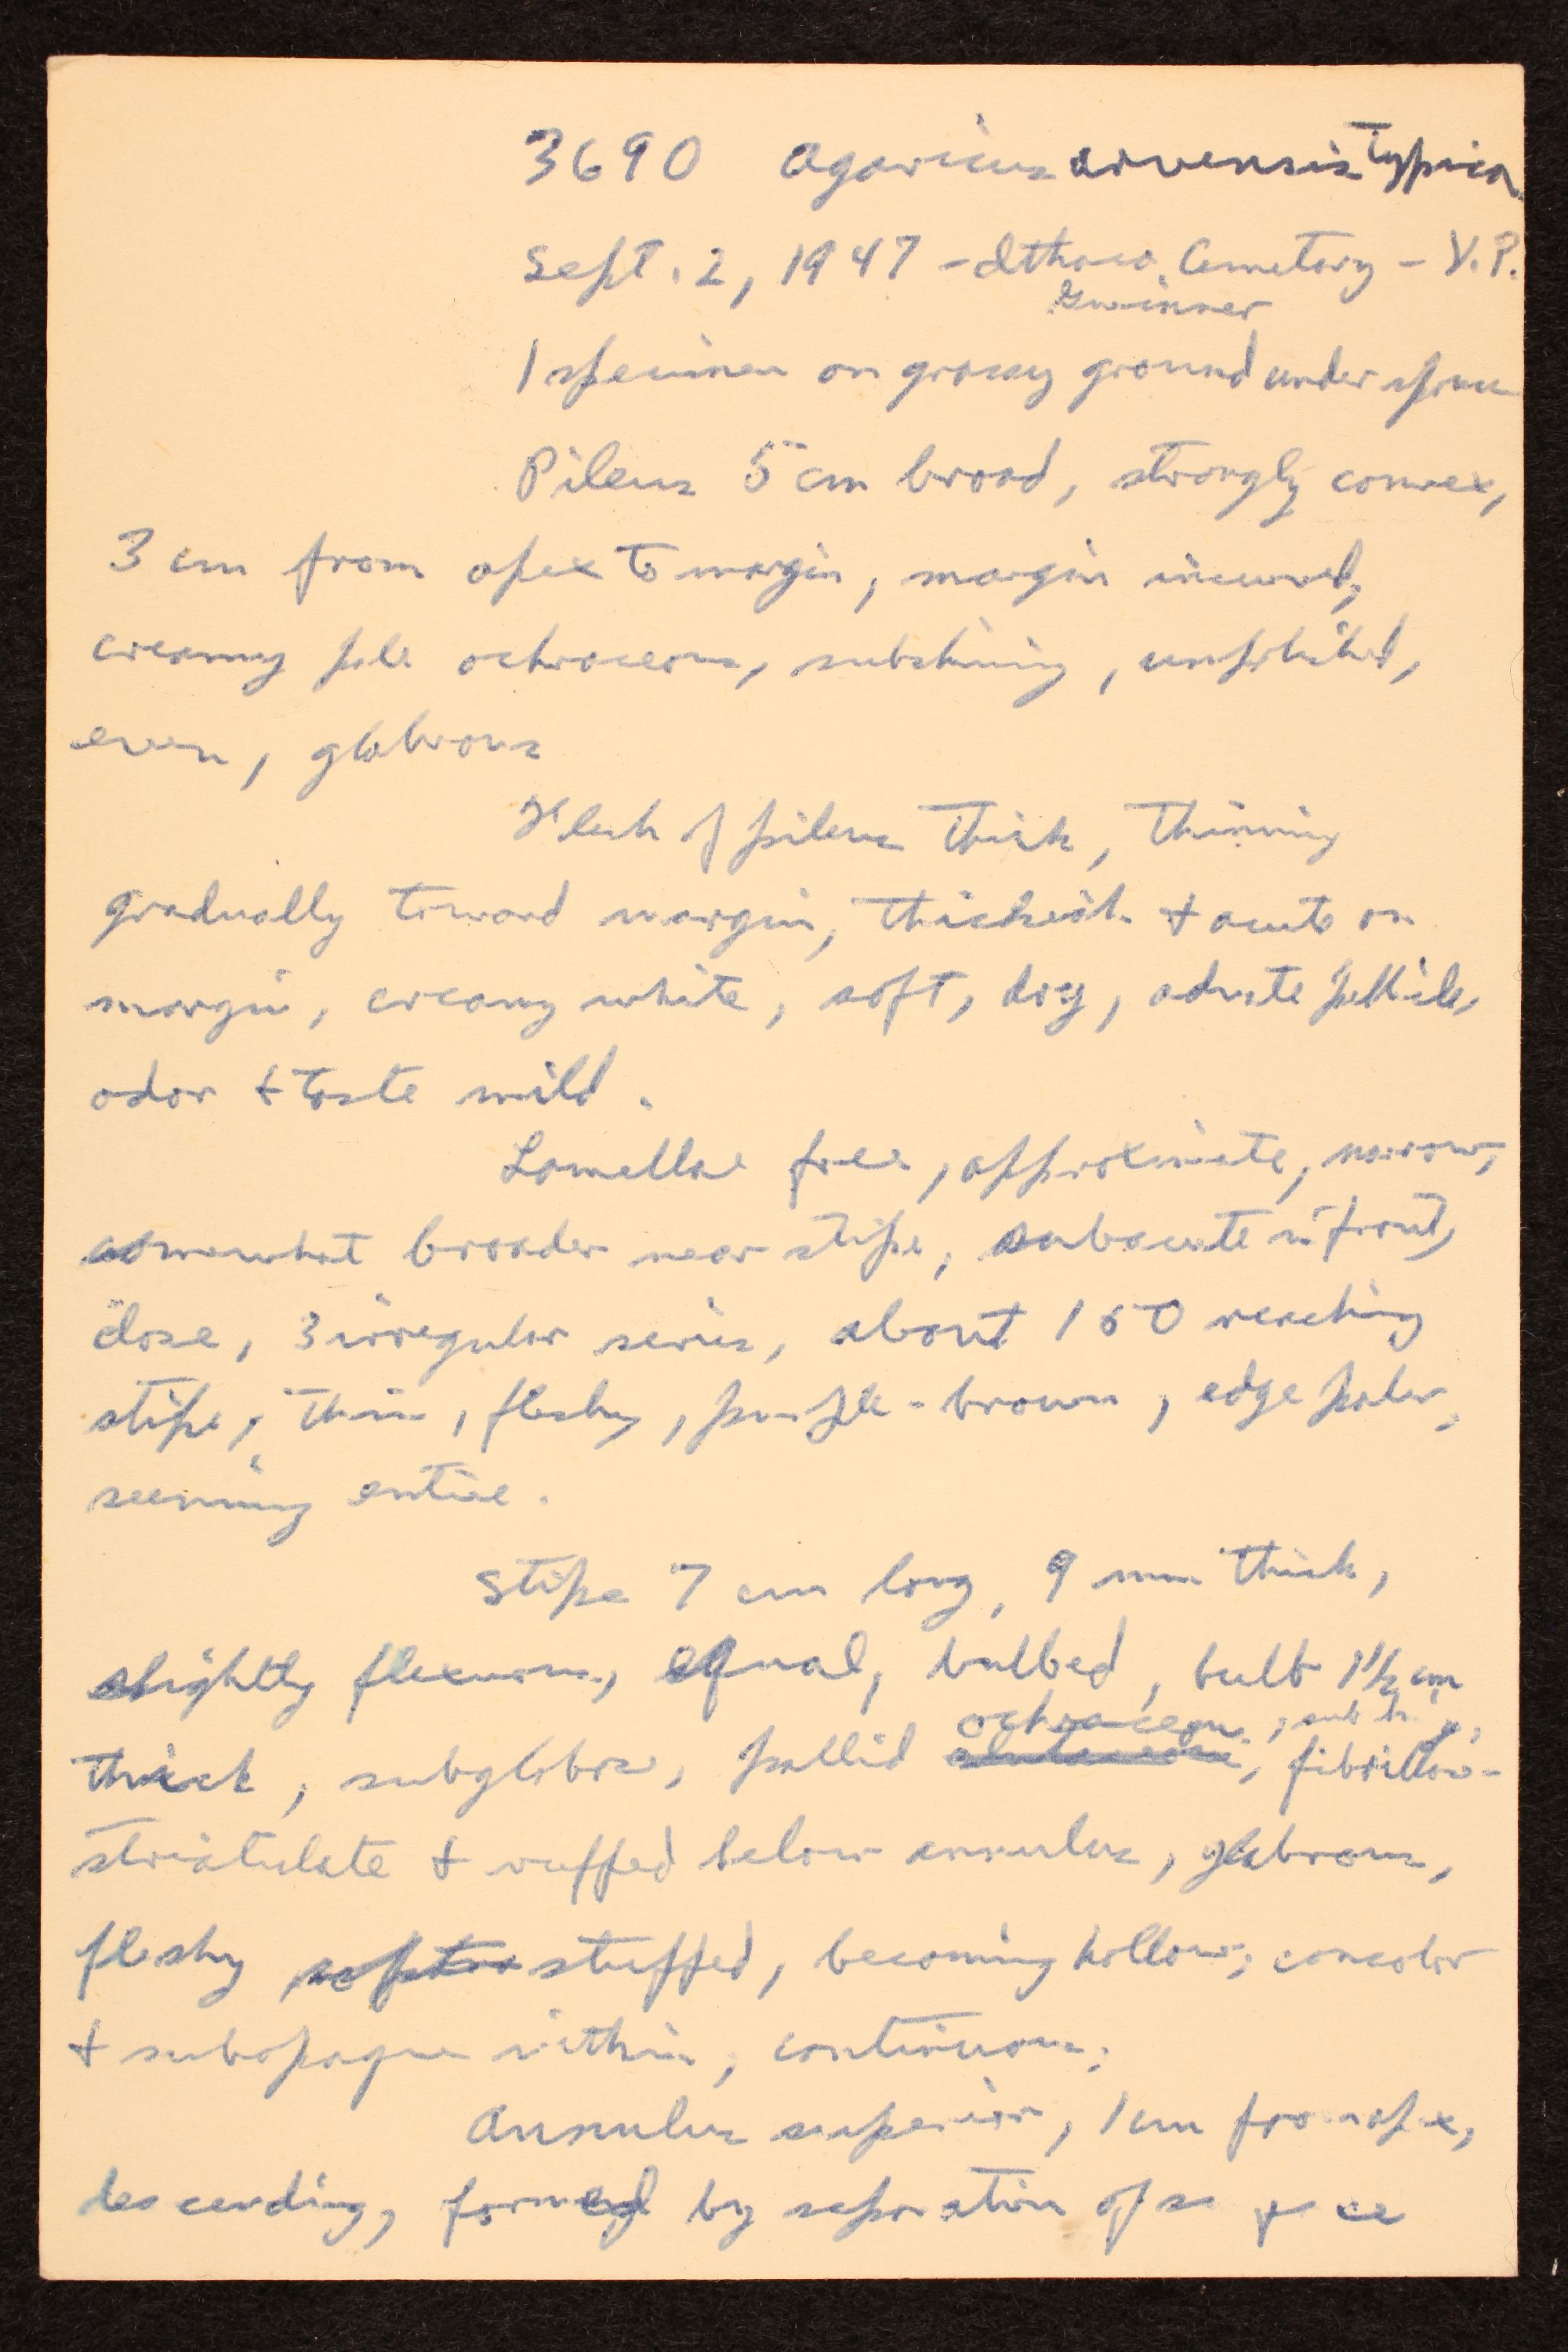 3690 Agaricus arvensis typica
Sept. 2, 1947 - Ithaca, Cemetary - V.P.
Gwinner
1 specimen on grassy ground under spruce
Pileus 5 cm broad, strongly convex,
3 cm from apex to margin, margin incurved,
creamy pale ochraceous, subshining, unpolished,
even, glabrous
Flesh of pileus thick, thinning
gradually toward margin, thickish + acute on
margin, creamy white, soft, dry, adnate pellicle,
odor + taste mild.
Lamellae free, approximate, narrow,
somewhat broader near stipe, subacute in front,
close, 3 irregular series, about 150 reaching
stipe, thin, fleshy, purple-brown, edge paler,
seeming entire.
Stipe 7 cm long, 9 mm thick,
slightly flexuous, equal, bulbed, bulb 1 1/2 cm
ochraceous,
thick, subglobose, pallid fibrillose-
striatulate + ruffed below annulus, glabrous,
fleshy stuffed, becoming hollow, concolor
+ subopaque within, continuous.
Annulus superior, 1 cm from apex,
descending, formed by separation of